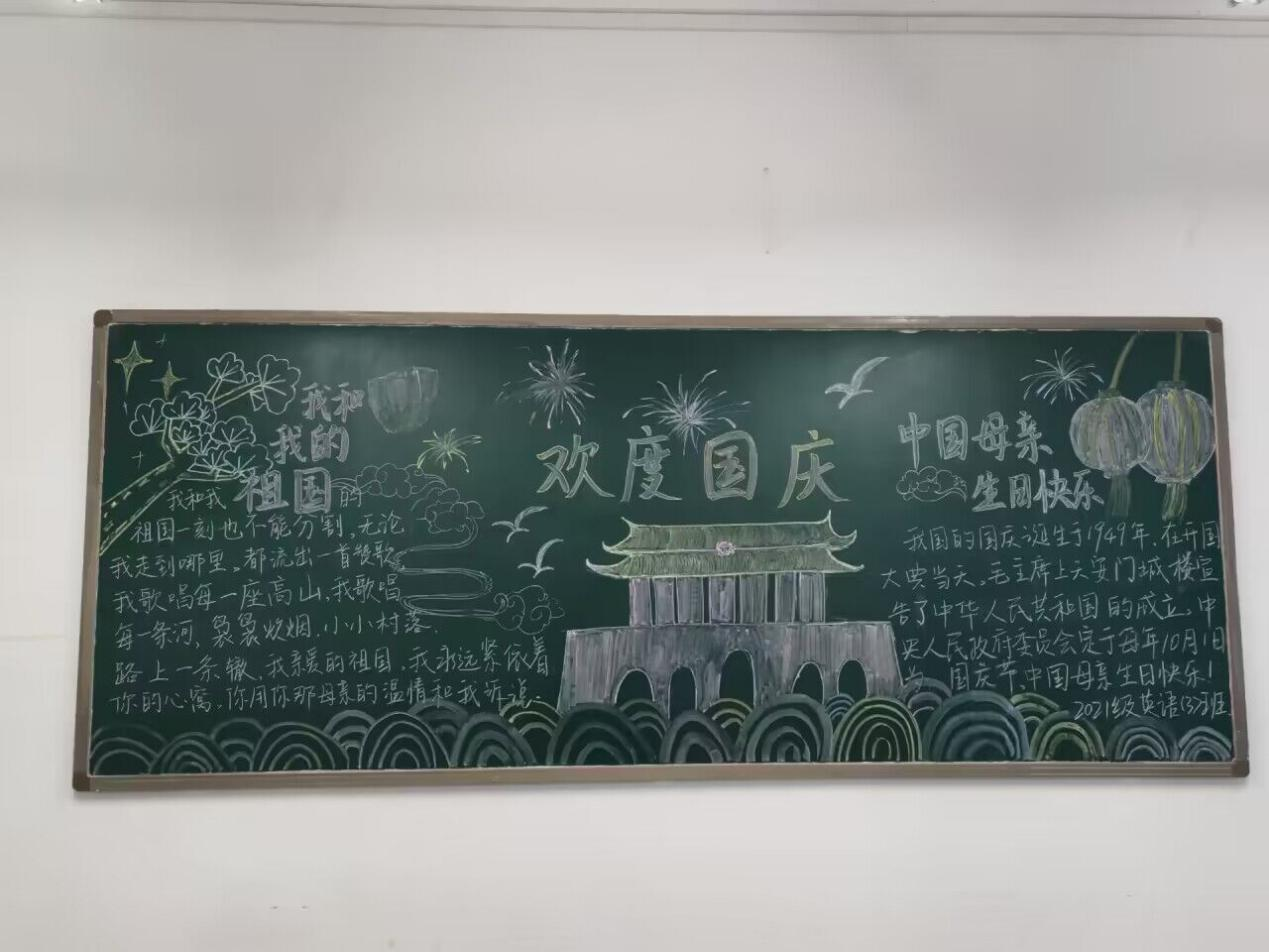 我和
我的
祖国
我和我的
祖国一刻也不能分割,无论
我走到哪里,都流出一首赞歌
我歌唱每一座高山,我歌唱
每一条河,袅袅炊烟,小小村落,
路上一条辙,我亲爱的祖国,我永远紧依着
你的心窝,你用你那母亲的温情和我诉说。
欢度国庆
中国母亲
生日快乐
我国的国庆诞生于1949年,在开国
大典当天,毛主席上天安门城楼宣
告了中华人民共和国的成立,中
央人民政府委员会定于每年10月1日
为国庆节中国母亲生日快乐!
2021级英语(3)班